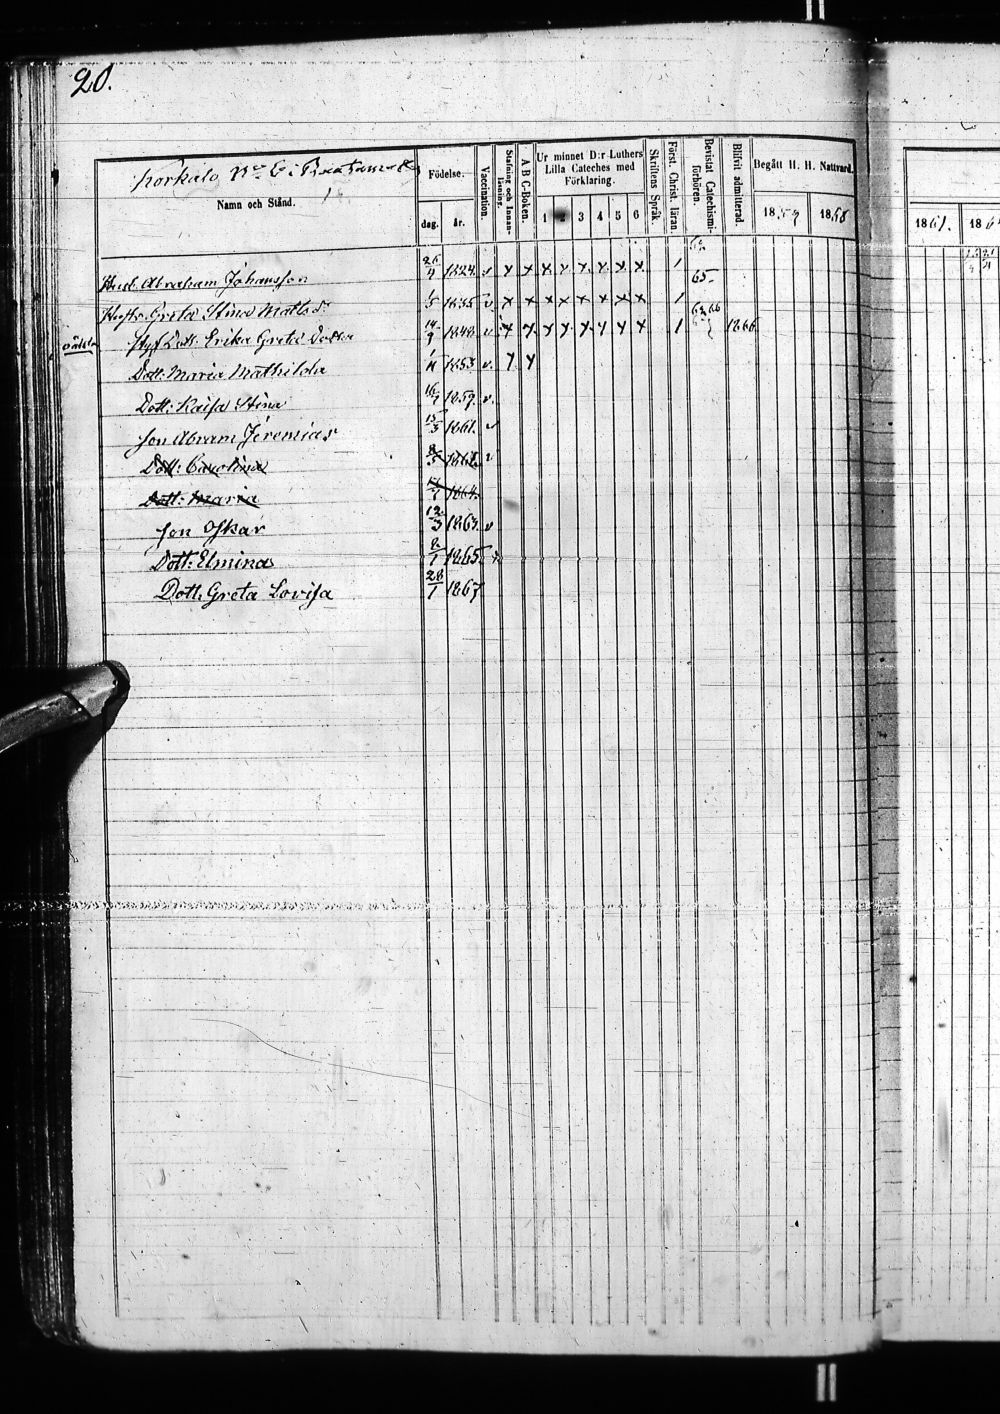 20.
Korkalo
Namn och Stånd.
Födelse.
dag. år.
Vaccination.
Stafning och Innanläsning.
A B C-Boken.
Ur minnet D:r Luthers Lilla Cateches med Förklaring.
1 2 3 4 5 6
Skriftens Språk.
Först. Christ. läran.
Bevistat Catechismiförhören.
Blifvit admitterad.
Begått H. H. Nattvard.
1859 1868
1861. 186
Abraham Johansson 26/4 1824. v x x x x x x x x 1
65.
Hustr. Greta Stina Matts d:r 1/5 1835 v. x x x x x x x x 1
Styf Dott. Erika Greta 14/9 1848. v x x x x x x x x 1 1866
Dott: Maria Mathilda 1853 v. x x
Dott: Kaisa Stina 16/7 1859. v.
Son Abram Jeremias 15/3 1861. v
Dott: Carolina 8/5 1862. v
Dott: Maria 1864.
Son Oskar 12/3 1863. v
Dott: Elmina 2/1 1865.
Dott. Greta Lovisa 28/1 1867